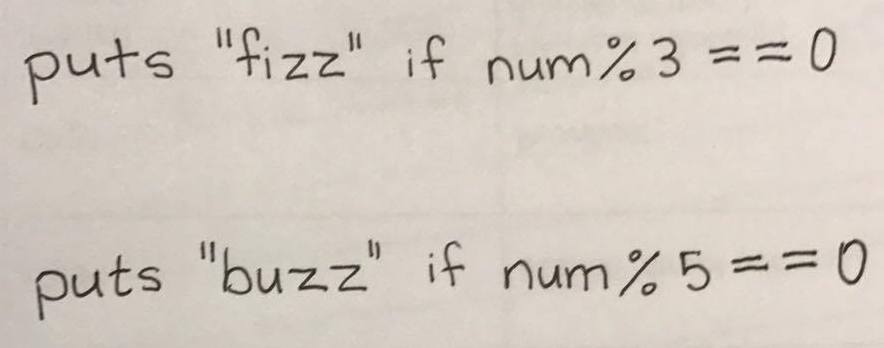 puts "fizz" if num%3 ==0
puts "buzz" if num%5==0